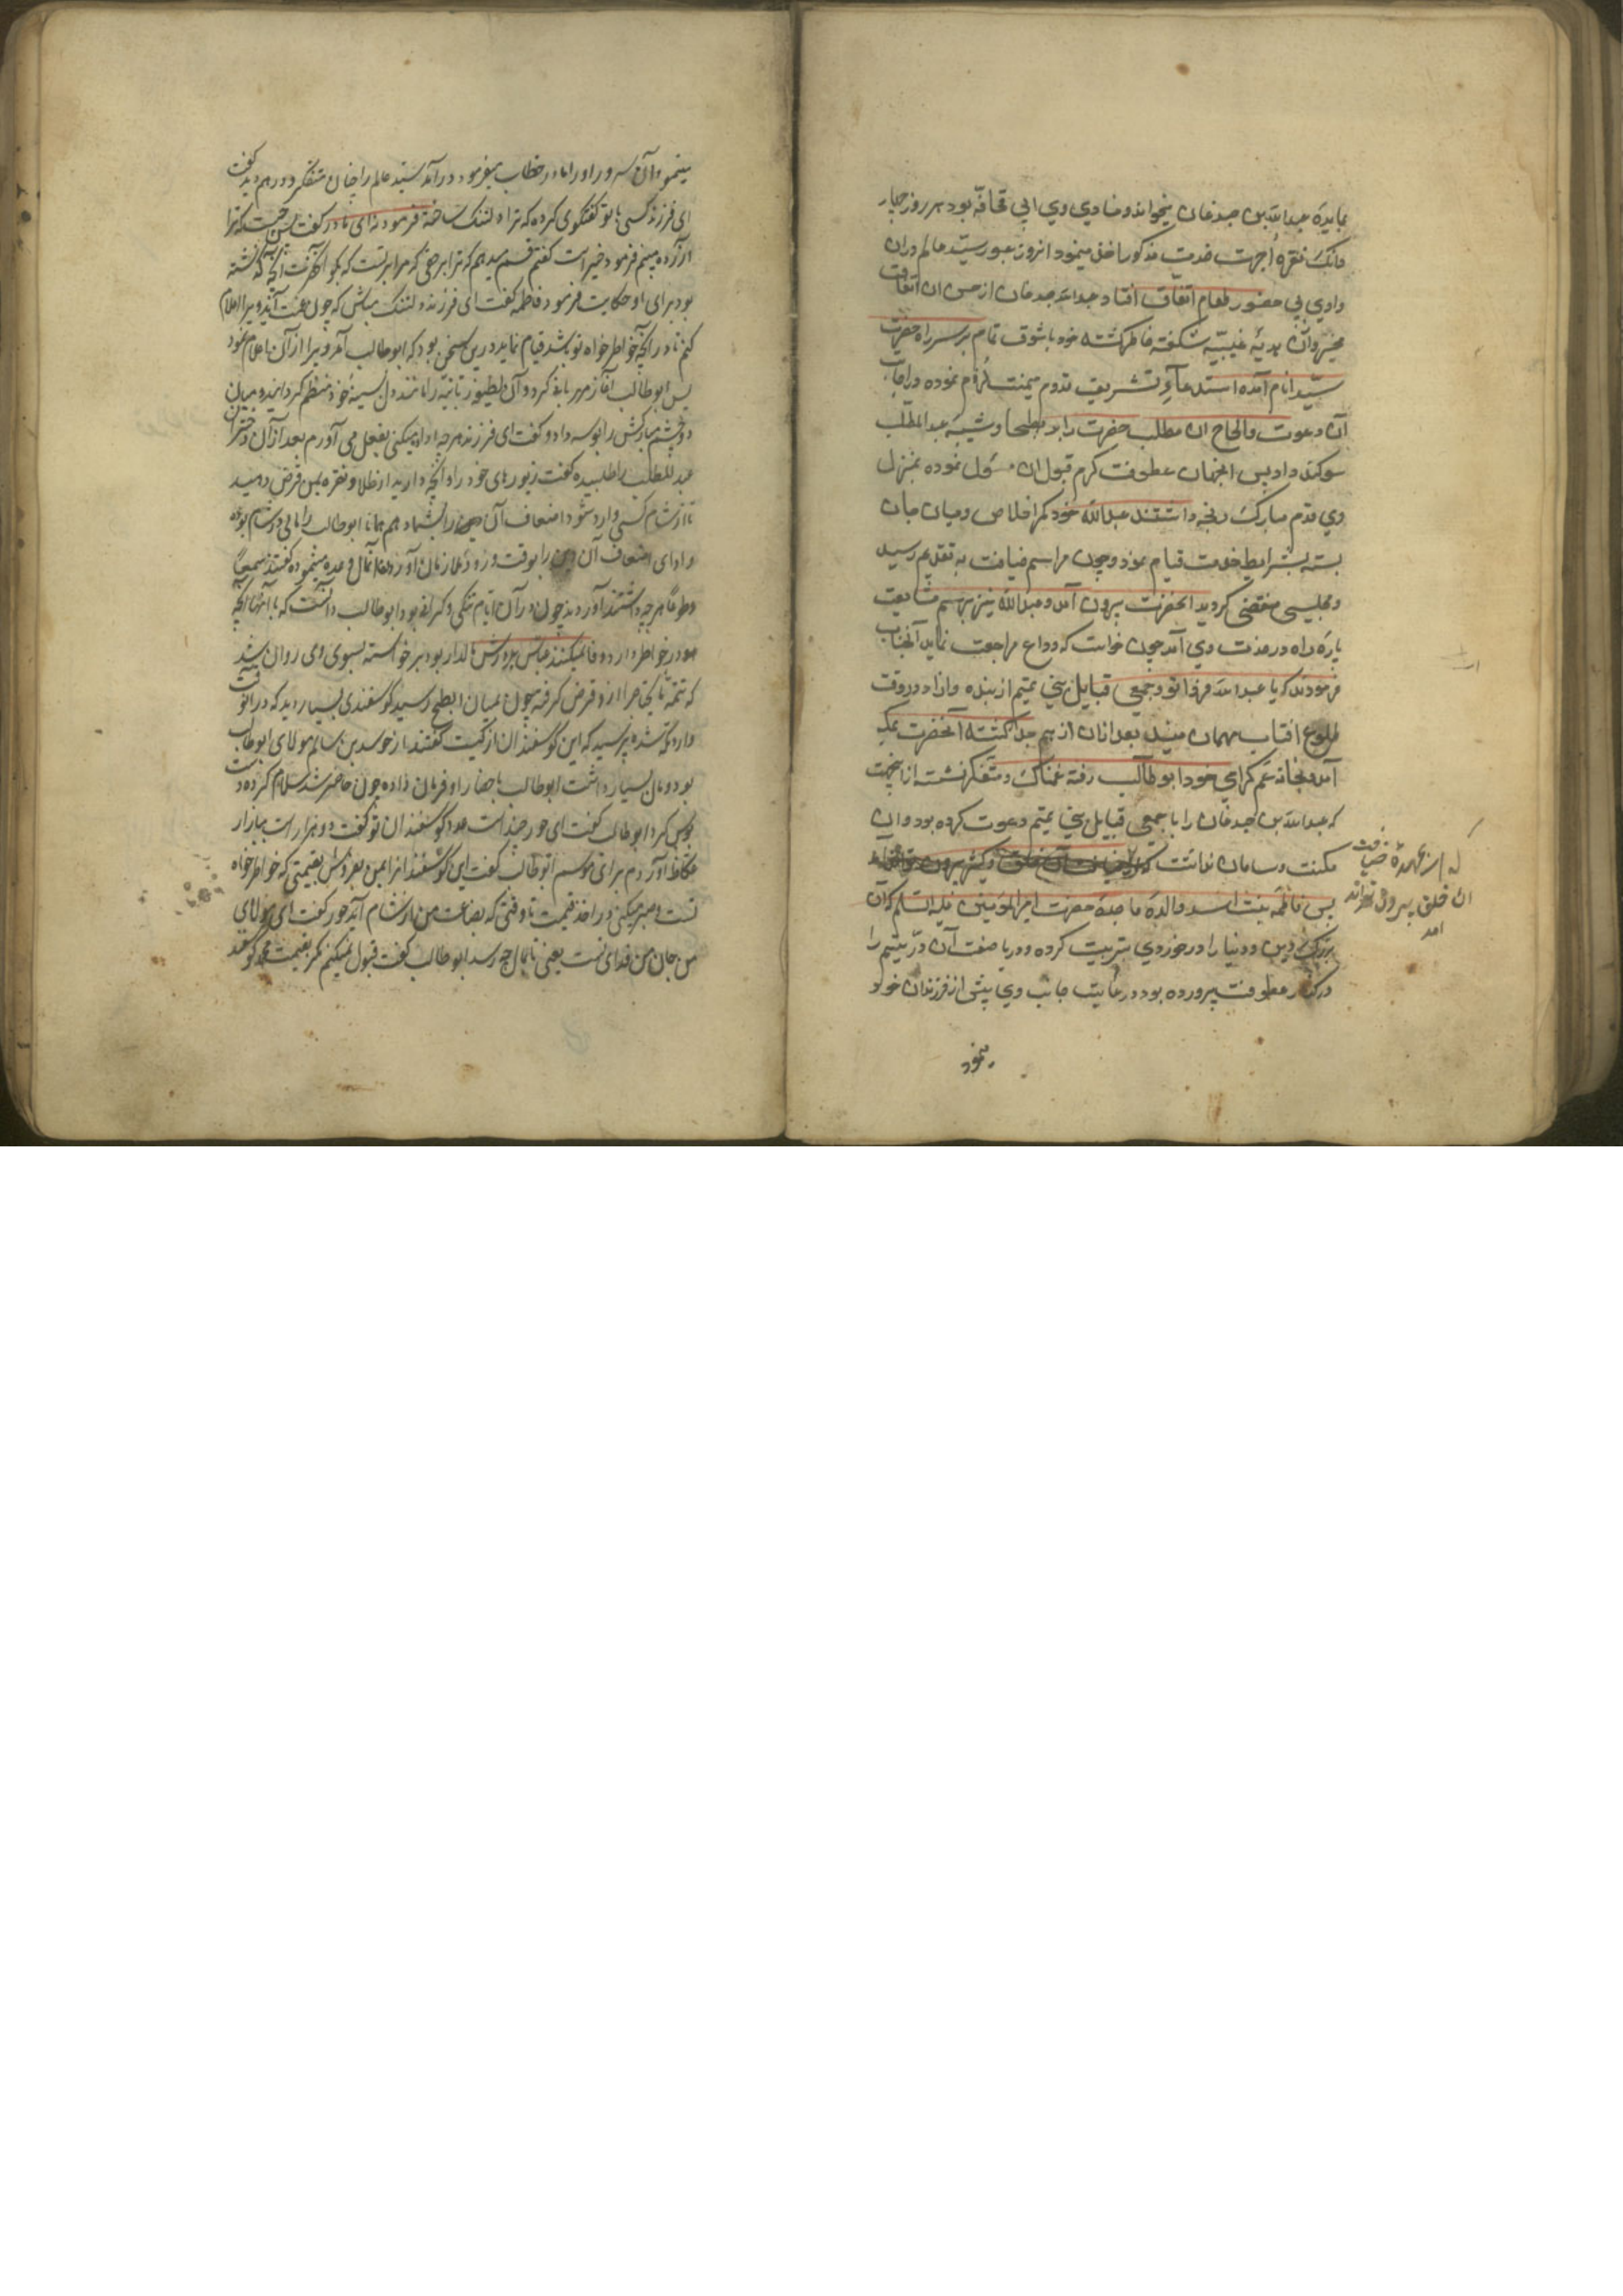 بمایدهٔ عبدالله بن جدعان میخواند و منادی وی ابی قحافه بود هر روز چهار
دانگ نقره أجرت خدمت مذکور اخذ مینمود انروز عبور سیّد عالم دران
وادی بی حضور طعام اتفاق افتاد عبدالله جدعان از حسن ان اتفاق
مخبر وآن هدیهٔ غیبیّه شکفته خاطر کشته خود با شوق تمام بر سر راه حضرت
سیّد انام آمده استدعاء تشریف قدوم میمنت لزوم نموده در اجابت
آن دعوت والحاح ان مطلب حضرت را برب بطحا و شیبه عبدالمطّلب
سوکند داد پس انجهان عطوفت کرم قبول ان مسؤل نموده بمنزل
وی قدم مبارک رنجه داشتند عبدالله خود کمر اخلاص ومیان جان
بسته بشرایط خدمت قیام نمود وچون مراسم ضیافت به تقدیم رسید
و مجلس منقضی کردید انحضرت بیرون آمد وعبدالله نیز برسم مشایعت
پاره راه در خدمت وی آمد چون خواست که وداع مراجعت نماید آنجناب
فرمودند که یا عبدالله فردا تو و جمعی قبایل بنی تمیم از بنده وازاد در وقت
طلوع افتاب مهمان منید بعد ازان از هم جدا کشته آنحضرت بمکه
آمد و بخانه عم کرامی خود ابو طالب رفته غمناک ومتفکر نشسته از اینجهت
که عبدالله بن جدعان را با جمعی قبایل بنی تمیم دعوت کرده بود و ان
مکنت وسامان نداشت
که از عهدهٔ ضیافت
ان خلق بیرون تواند
امد
پس فاطمه بنت اسد والدهٔ ماجدهٔ حضرت امیرالمؤمنین علیه السلم که آن
بزرک دین ودنیا را در خوردی تربیت کرده ودر یا صفت آن درّ یتیم را
در کنار عطوفت پرورده بود در رعایت جانب وی بیش از فرزندان خود
مینمود
مینمود وآن سرور او را مادر خطاب میفرمود درآمد سیّد عالم را چنان متفکر ودرهم دید کفت
ای فرزند کسی با تو کفتکوی کرده که ترا دلتنک ساخته فرمود نه ای مادر کفت پس چیست که ترا
آزرده میبینم فرمود خیر است کفتم قسم میدهم که ترا بر حقی که مرا بر تست که بکو آنحضرت آنچه کذشته
بود برای او حکایت فرمود فاطمه کفت ای فرزند دلتنک مباش که چون عمت آید ویرا اعلام
کنم تا در آنچه خواطر خواه تو باشد قیام نماید درین سخن بود که ابوطالب آمد ویرا از آن اعلام نمود
پس ابوطالب آغاز مهربانی کرد وآن لطیفه ربّانیّه را مانند دل بسینهٔ خود منضم کردانید ومیان
دو چشم مبارکش را بوسه داد وکفت ای فرزند هر چه اراده میکنی بفعل می آورم بعد از آن دختران
عبدالمطلب را طلبیده کفت زیورهای خود را وآنچه دارید از طلا ونقره بمن قرض دهید
تا از شام کسی وارد شود اضعاف آن را بشما دهم همانا ابوطالب را مالی در شام بوده
وادای اضعاف آن را بوقت ورود ملازمان آورنده آن مال وعده مینموده کفتند سمعاً
وطوعاً هر چه داشتند آوردند چون درآن ایّام تنکی وکرانی بود ابوطالب دانست که با آنها آنچه
در خواطر دارد وفا نمیکند عبّاس برادرش مالدار بود برخواسته بسوی وی روان شد
که تتمه مایحتاج را ازو قرض کرفته چون بمیان ابطح رسید کوسفندی بسیار دید که در آنوقت
وارد کشته پرسید که این کوسفندان از کیست کفتند از خوسد بن سالم مولای ابوطالب
بود ومال بسیار داشت ابوطالب باحضار او فرمان داده چون حاضر شد سلام کرده دست
بوس کرد ابوطالب کفت ای حور چند است عدد کوسفندان تو کفت دو هزار است ببازار
عکاظ آورده ام برای موسم ابوطالب کفت این کوسفندانرا بمن بفروش بقیمتی که خواطر خواه
تست وصبر میکنی در اخذ قیمت تا وقتی که بضاعت من از شام آید حور کفت ای مولای
من جان من فدای تست یعنی تا بمال چه رسد ابوطالب کفت قبول نمیکنم مکر بقیمت